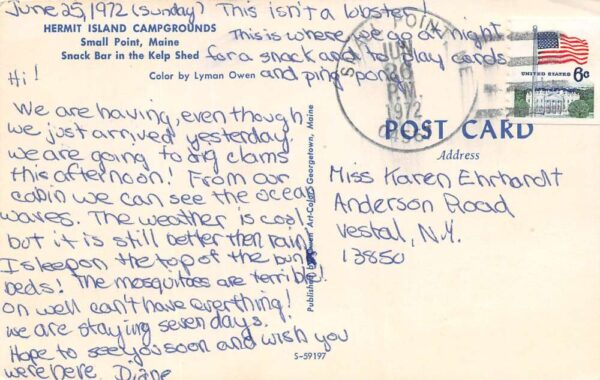 June 25, 1972 (Sunday) This isn't a lobster!
HERMIT ISLAND CAMPGROUNDS
Small Point, Maine
Snack Bar in the Kelp Shed
Color by Lyman Owen
This is where we go at night
for a snack and to play cards
and ping pong.
Hi!
We are having, even though
we just arrived yesterday.
we are going to dig clams
this afternoon! From our
cabin we can see the ocean
waves. The weather is cool
but it is still better then rain!
I sleep on the top of the bunk
beds! The mosquitoes are terrible!
on well can't have everthing!
we are staying seven days.
Hope to see you soon and wish you
were here. Diane
Published by Owen Art-Color, Georgetown, Maine
S-59197
SMALL POINT
JUN
26
PM
1972
UNITED STATES 6c
POST CARD
Address
Miss Karen Ehrhardt
Anderson Road
Vestal, N.Y.
13850